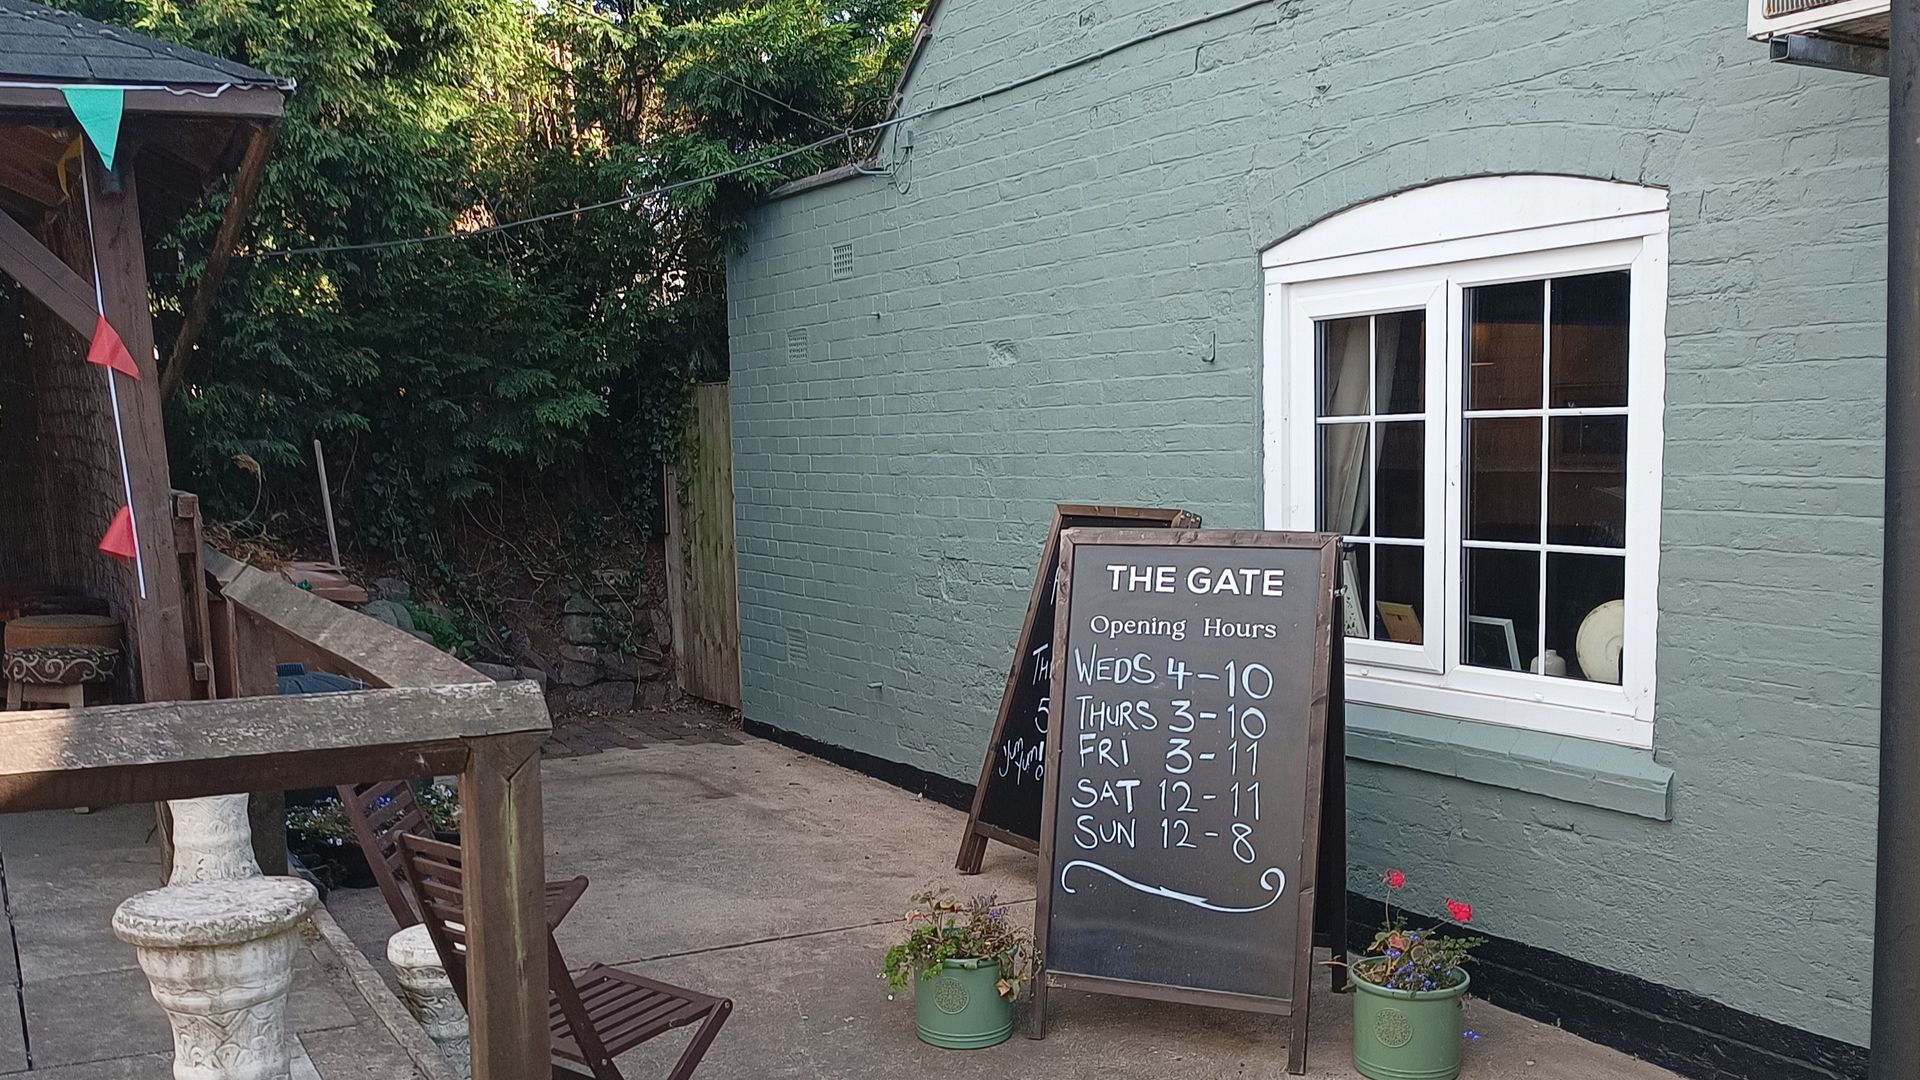 THE GATE
Opening Hours
WEDS 4-10
THURS 3-10
FRI 3-11
SAT 12-11
SUN 12-8
5
Yum
Yum!